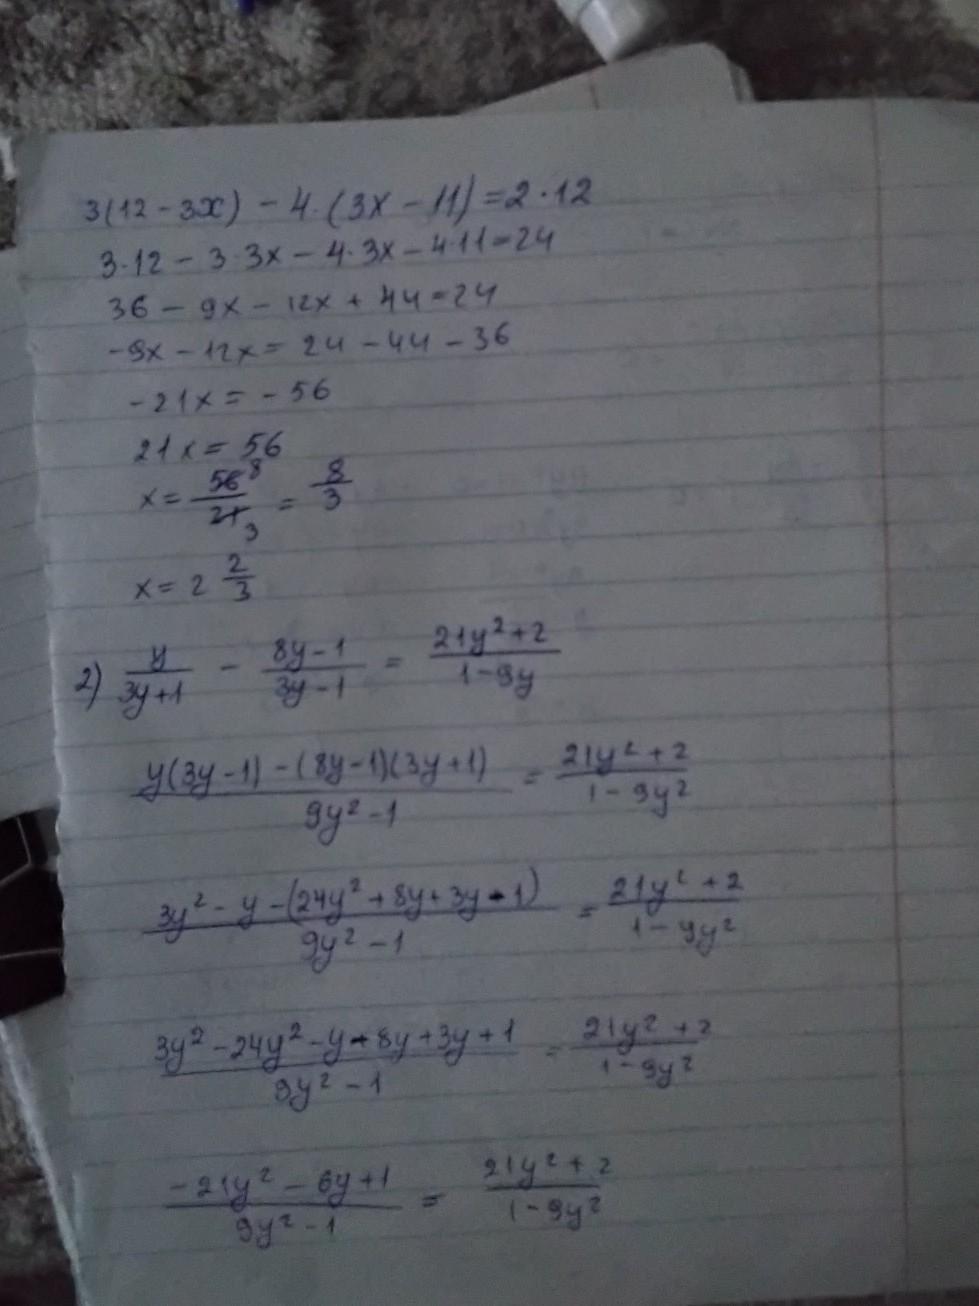 3(12 - 3x) - 4·(3x - 11) = 2·12
3·12 - 3·3x - 4·3x - 4·11 = 24
36 - 9x - 12x + 44 = 24
-9x - 12x = 24 - 44 - 36
-21x = -56
21x = 56
x = 56^8/21_3 = 8/3
x = 2 2/3
2) y/(3y+1) - (8y-1)/(3y-1) = (21y²+2)/(1-9y)
(y(3y-1) - (8y-1)(3y+1))/(9y²-1) = (21y²+2)/(1-9y²)
(3y² - y - (24y² + 8y + 3y - 1))/(9y²-1) = (21y²+2)/(1-9y²)
(3y² - 24y² - y - 8y + 3y + 1)/(9y²-1) = (21y²+2)/(1-9y²)
(-21y² - 6y + 1)/(9y²-1) = (21y²+2)/(1-9y²)